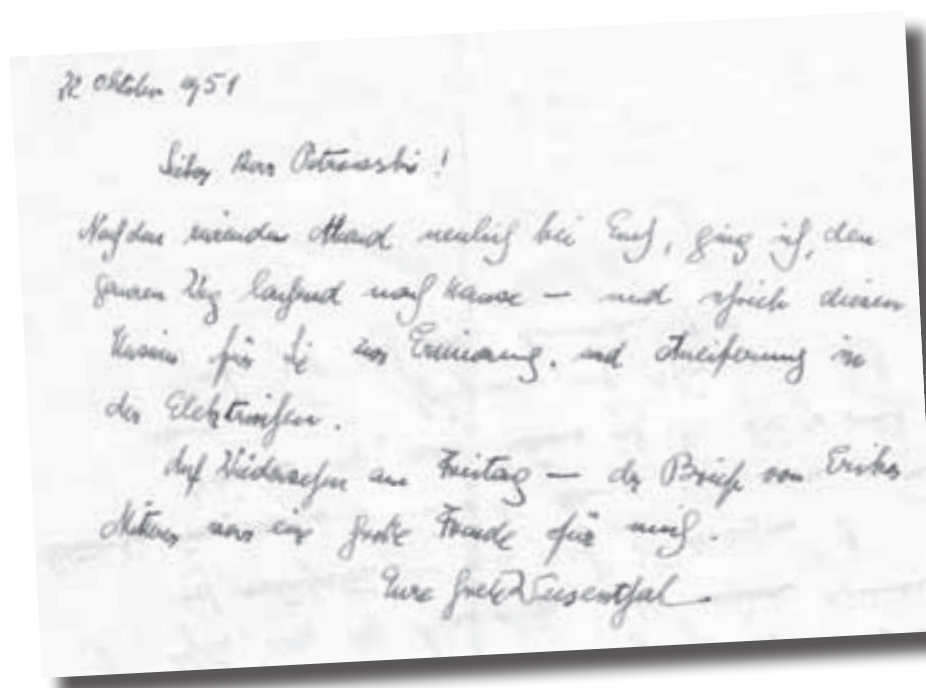 22 Oktober 1951
Lieber Herr Petrowski!
Nach dem reizenden Abend neulich bei Euch, ging ich, den
ganzen Weg laufend nach Hause – und schrieb diesen
für Sie zur Erinnerung. und Aneiferung in
der Elektrischen.
Auf Wiedersehen am Freitag – der Brief von Erikas
Mutter war eine große Freude für mich.
Eure Grete Wiesenthal